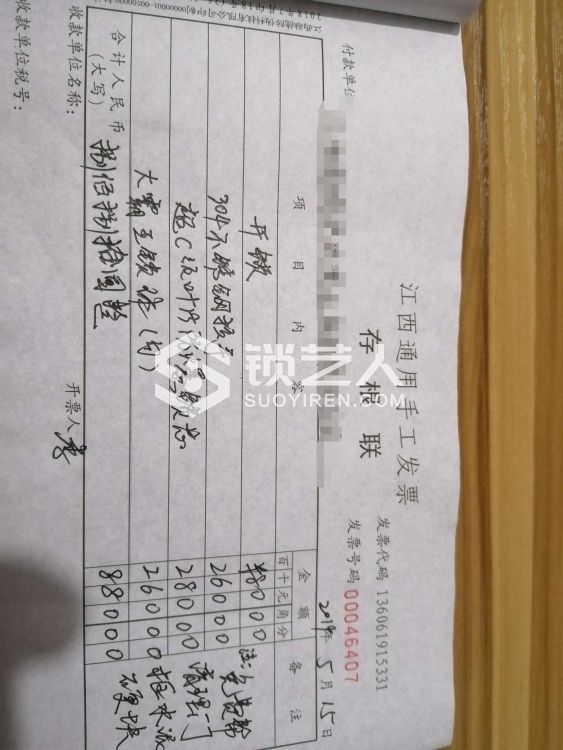 江西通用手工发票
存根联
发票代码 136061915331
发票号码 00046407
付款单位
2019年5月15日
项目内容 金额 备注
百十元角分
开锁 8000
304不锈钢拉手 26000 注:免费帮
超C级叶片 锁芯 28000 清理门
大霸王锁体(句) 26000 框水泥
合计人民币(大写) 捌佰捌拾圆整 88000 硬块
收款单位名称: 开票人 李
收款单位税号:
锁艺人
SUOYIREN.COM